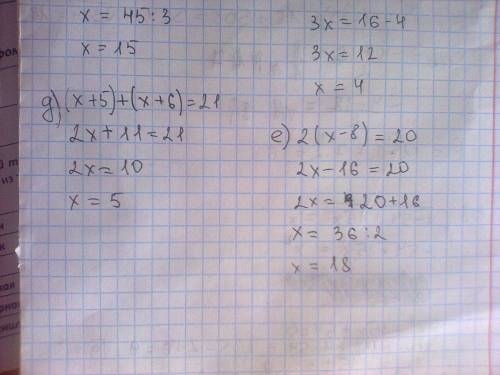 x = 45 : 3
x = 15
д) (x+5)+(x+6)=21
2x+11=21
2x=10
x = 5
3x=16-4
3x=12
x = 4
е) 2(x-8)=20
2x-16=20
2x= 20+16
x= 36:2
x = 18